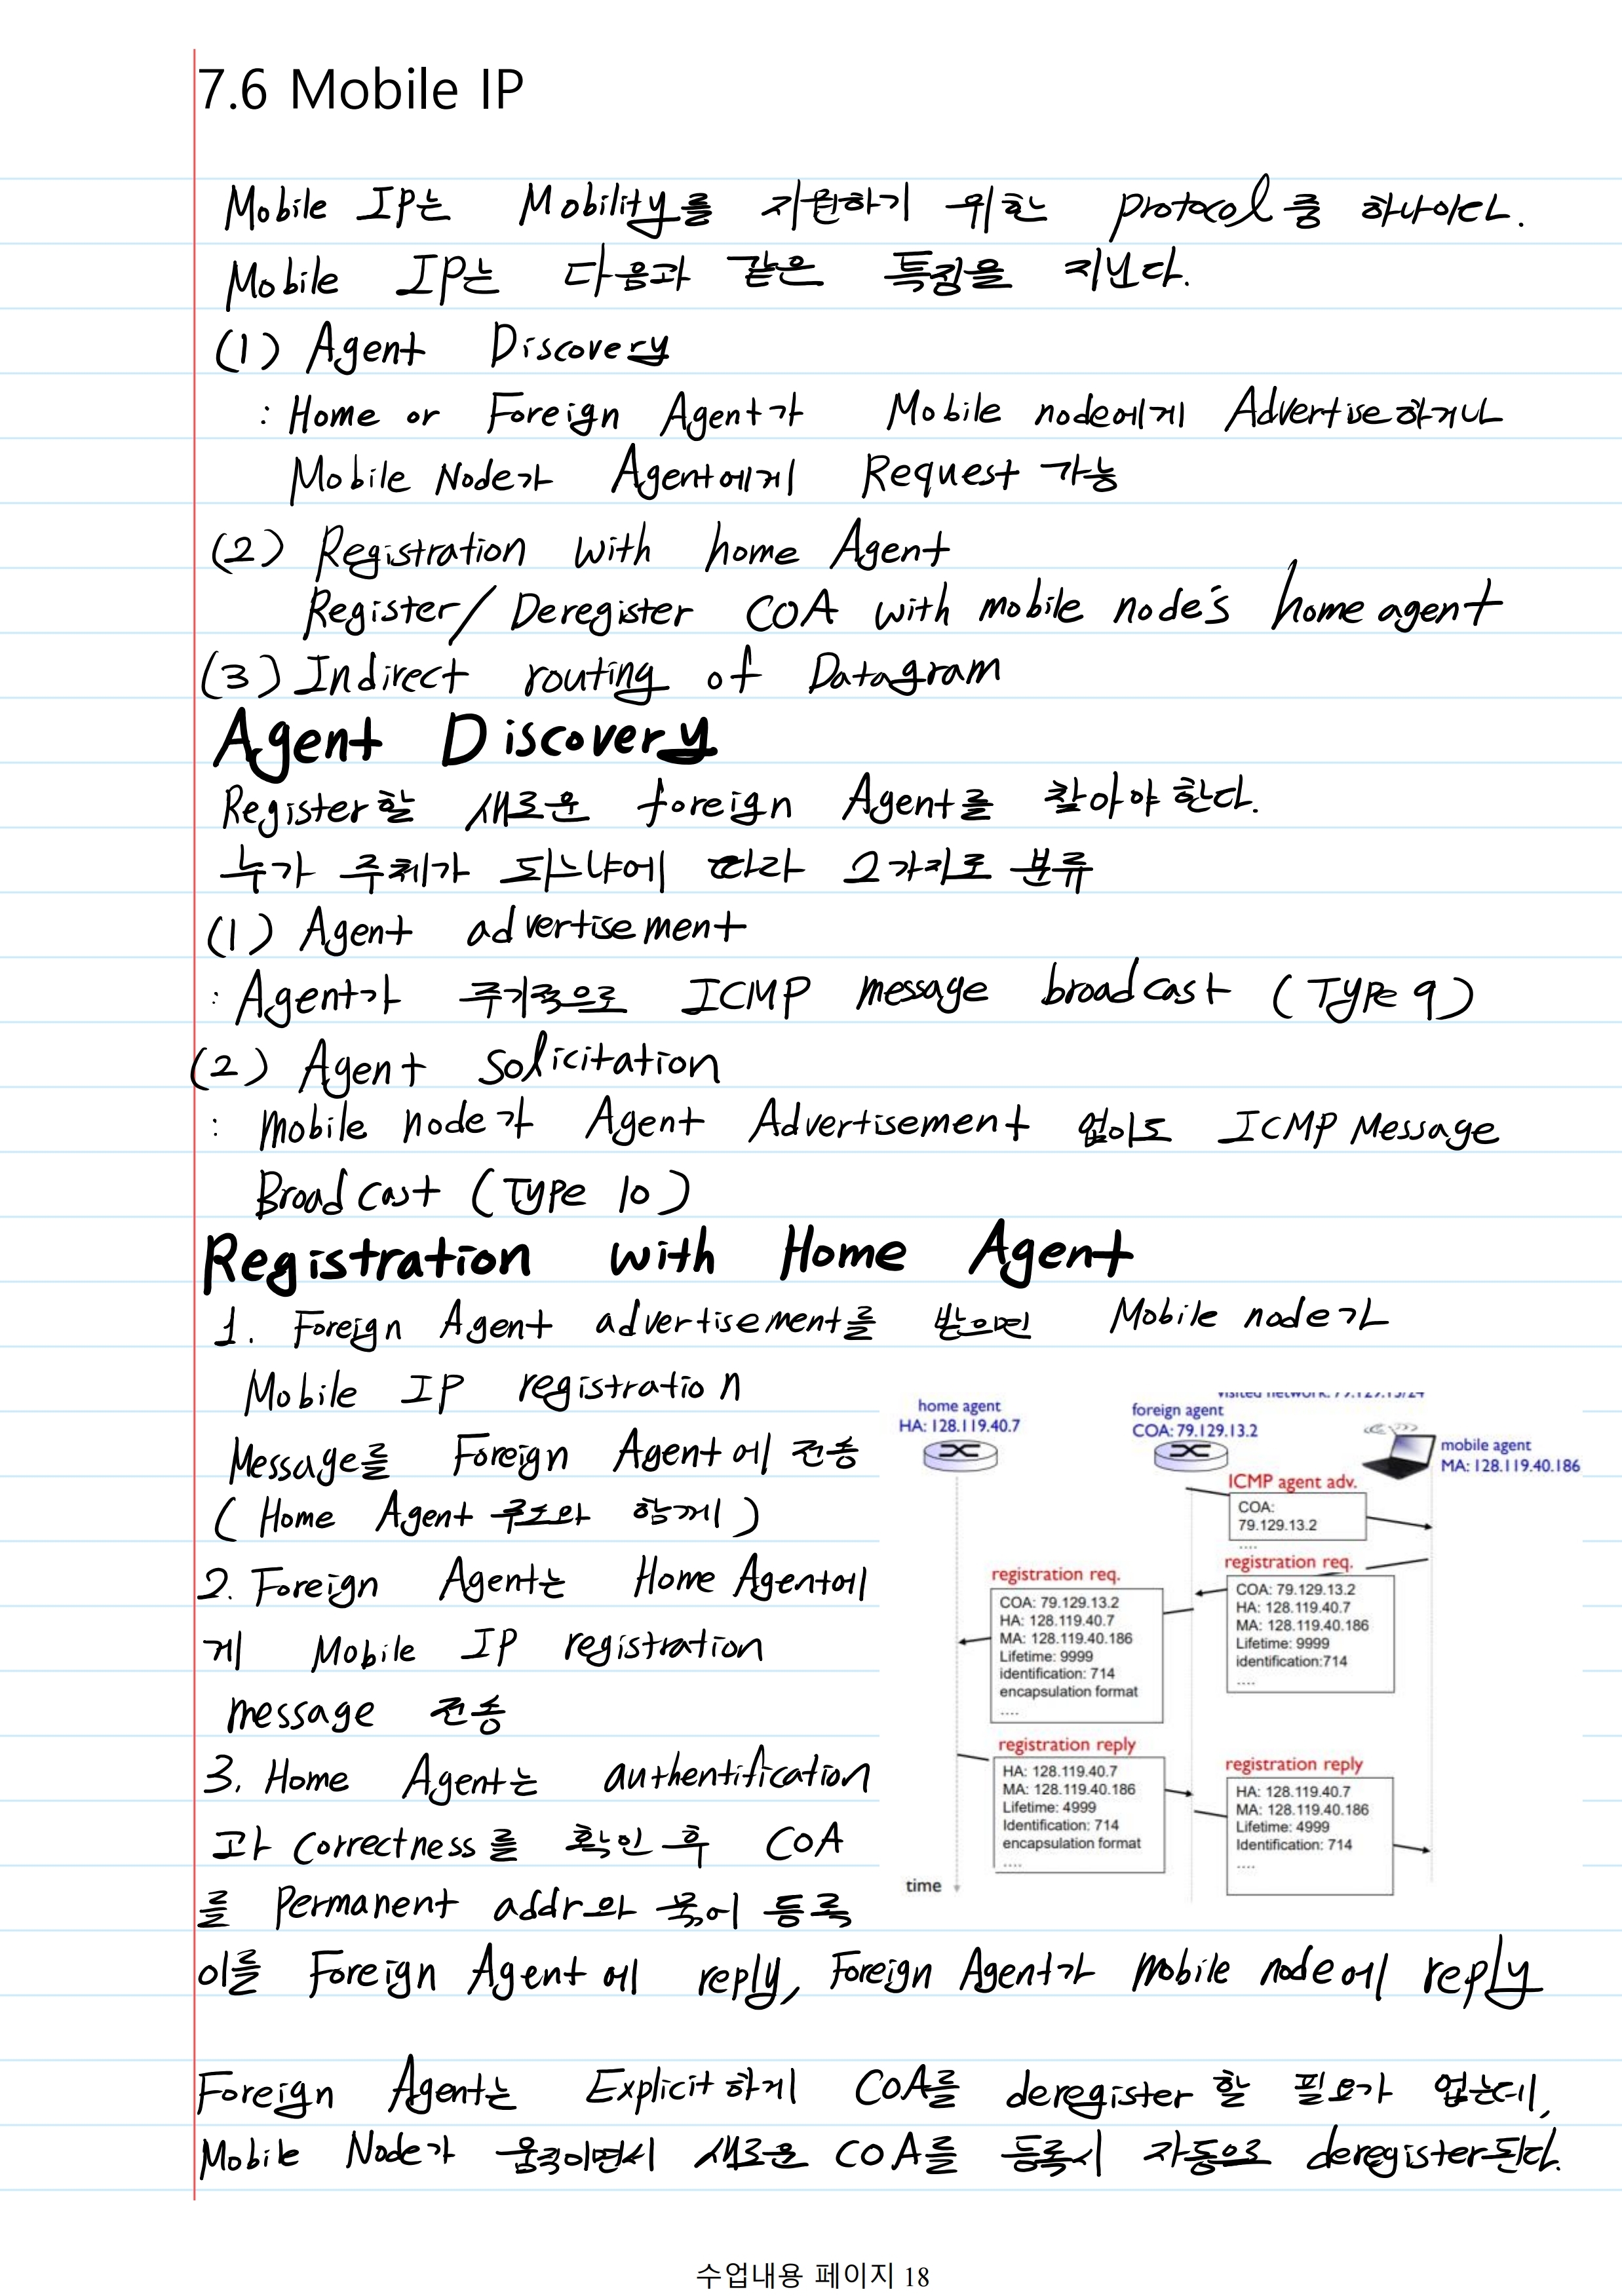 7.6 Mobile IP
Mobile IP는 Mobility를 지원하기 위한 protocol 중 하나이다.
Mobile IP는 다음과 같은 특징을 지닌다.
(1) Agent Discovery
: Home or Foreign Agent가 Mobile node에게 Advertise하거나
Mobile Node가 Agent에게 Request 가능
(2) Registration with home Agent
Register/Deregister COA with mobile node's home agent
(3) Indirect routing of Datagram
Agent Discovery
Register할 새로운 foreign Agent를 찾아야 한다.
누가 주체가 되느냐에 따라 2가지로 분류
(1) Agent advertisement
: Agent가 주기적으로 ICMP message broadcast (Type 9)
(2) Agent solicitation
: mobile node가 Agent Advertisement 없이도 ICMP Message
Broadcast (Type 10)
Registration with Home Agent
1. Foreign Agent advertisement를 받으면 Mobile node가
Mobile IP registration
Message를 Foreign Agent에 전송
(Home Agent 주소와 함께)
2. Foreign Agent는 Home Agent에
게 Mobile IP registration
message 전송
3. Home Agent는 authentification
과 correctness를 확인 후 COA
를 Permanent addr와 묶어 등록
이를 Foreign Agent에 reply, Foreign Agent가 mobile node에 reply
visited network: 79.129.13/24
home agent
HA: 128.119.40.7
foreign agent
COA: 79.129.13.2
mobile agent
MA: 128.119.40.186
ICMP agent adv.
COA:
79.129.13.2
....
registration req.
COA: 79.129.13.2
HA: 128.119.40.7
MA: 128.119.40.186
Lifetime: 9999
identification:714
....
registration req.
COA: 79.129.13.2
HA: 128.119.40.7
MA: 128.119.40.186
Lifetime: 9999
identification: 714
encapsulation format
....
registration reply
HA: 128.119.40.7
MA: 128.119.40.186
Lifetime: 4999
Identification: 714
encapsulation format
....
registration reply
HA: 128.119.40.7
MA: 128.119.40.186
Lifetime: 4999
Identification: 714
....
time
Foreign Agent는 Explicit하게 COA를 deregister 할 필요가 없는데,
Mobile Node가 움직이면서 새로운 COA를 등록시 자동으로 deregister된다.
수업내용 페이지 18